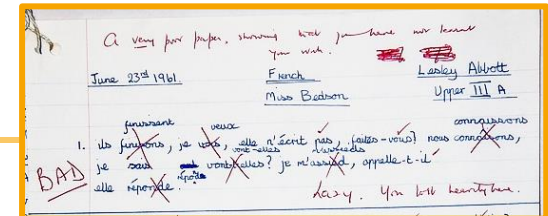 A very poor paper, showing that you have not learnt
your work.
June 23rd 1961. French Lesley Abbott
Miss Bedson Upper III A
finissent veux connaissons
1. ils finissons, je vais, elle n'écrit pas, faites-vous? nous connaisons,
vont-elles m'assieds
je sais vontselles? je m'assied, appelle-t-il
répond
elle réponde.
BAD
Lazy. You lost heavily here.